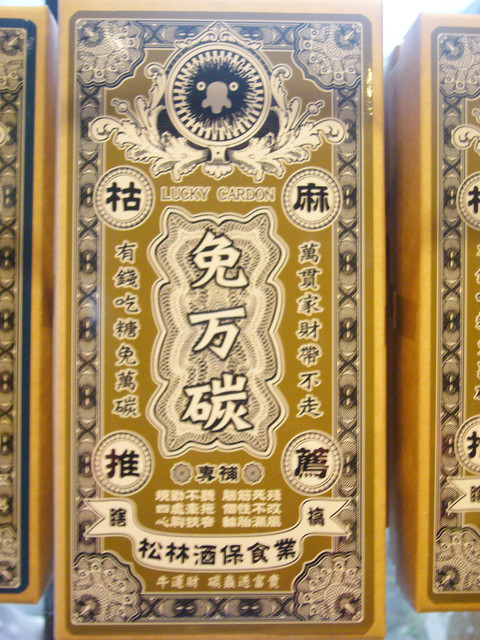 LUCKY CARDON
枯
麻
免万碳
萬貫家財帶不走
有錢吃糖免萬碳
推
薦
專補
規勸不聽 腦筋死殘
四處牽拖 個性不改
心胸狹窄 輪胎漏風
瞎
搞
松林酒保食業
牛運財 碳蟲透富貴